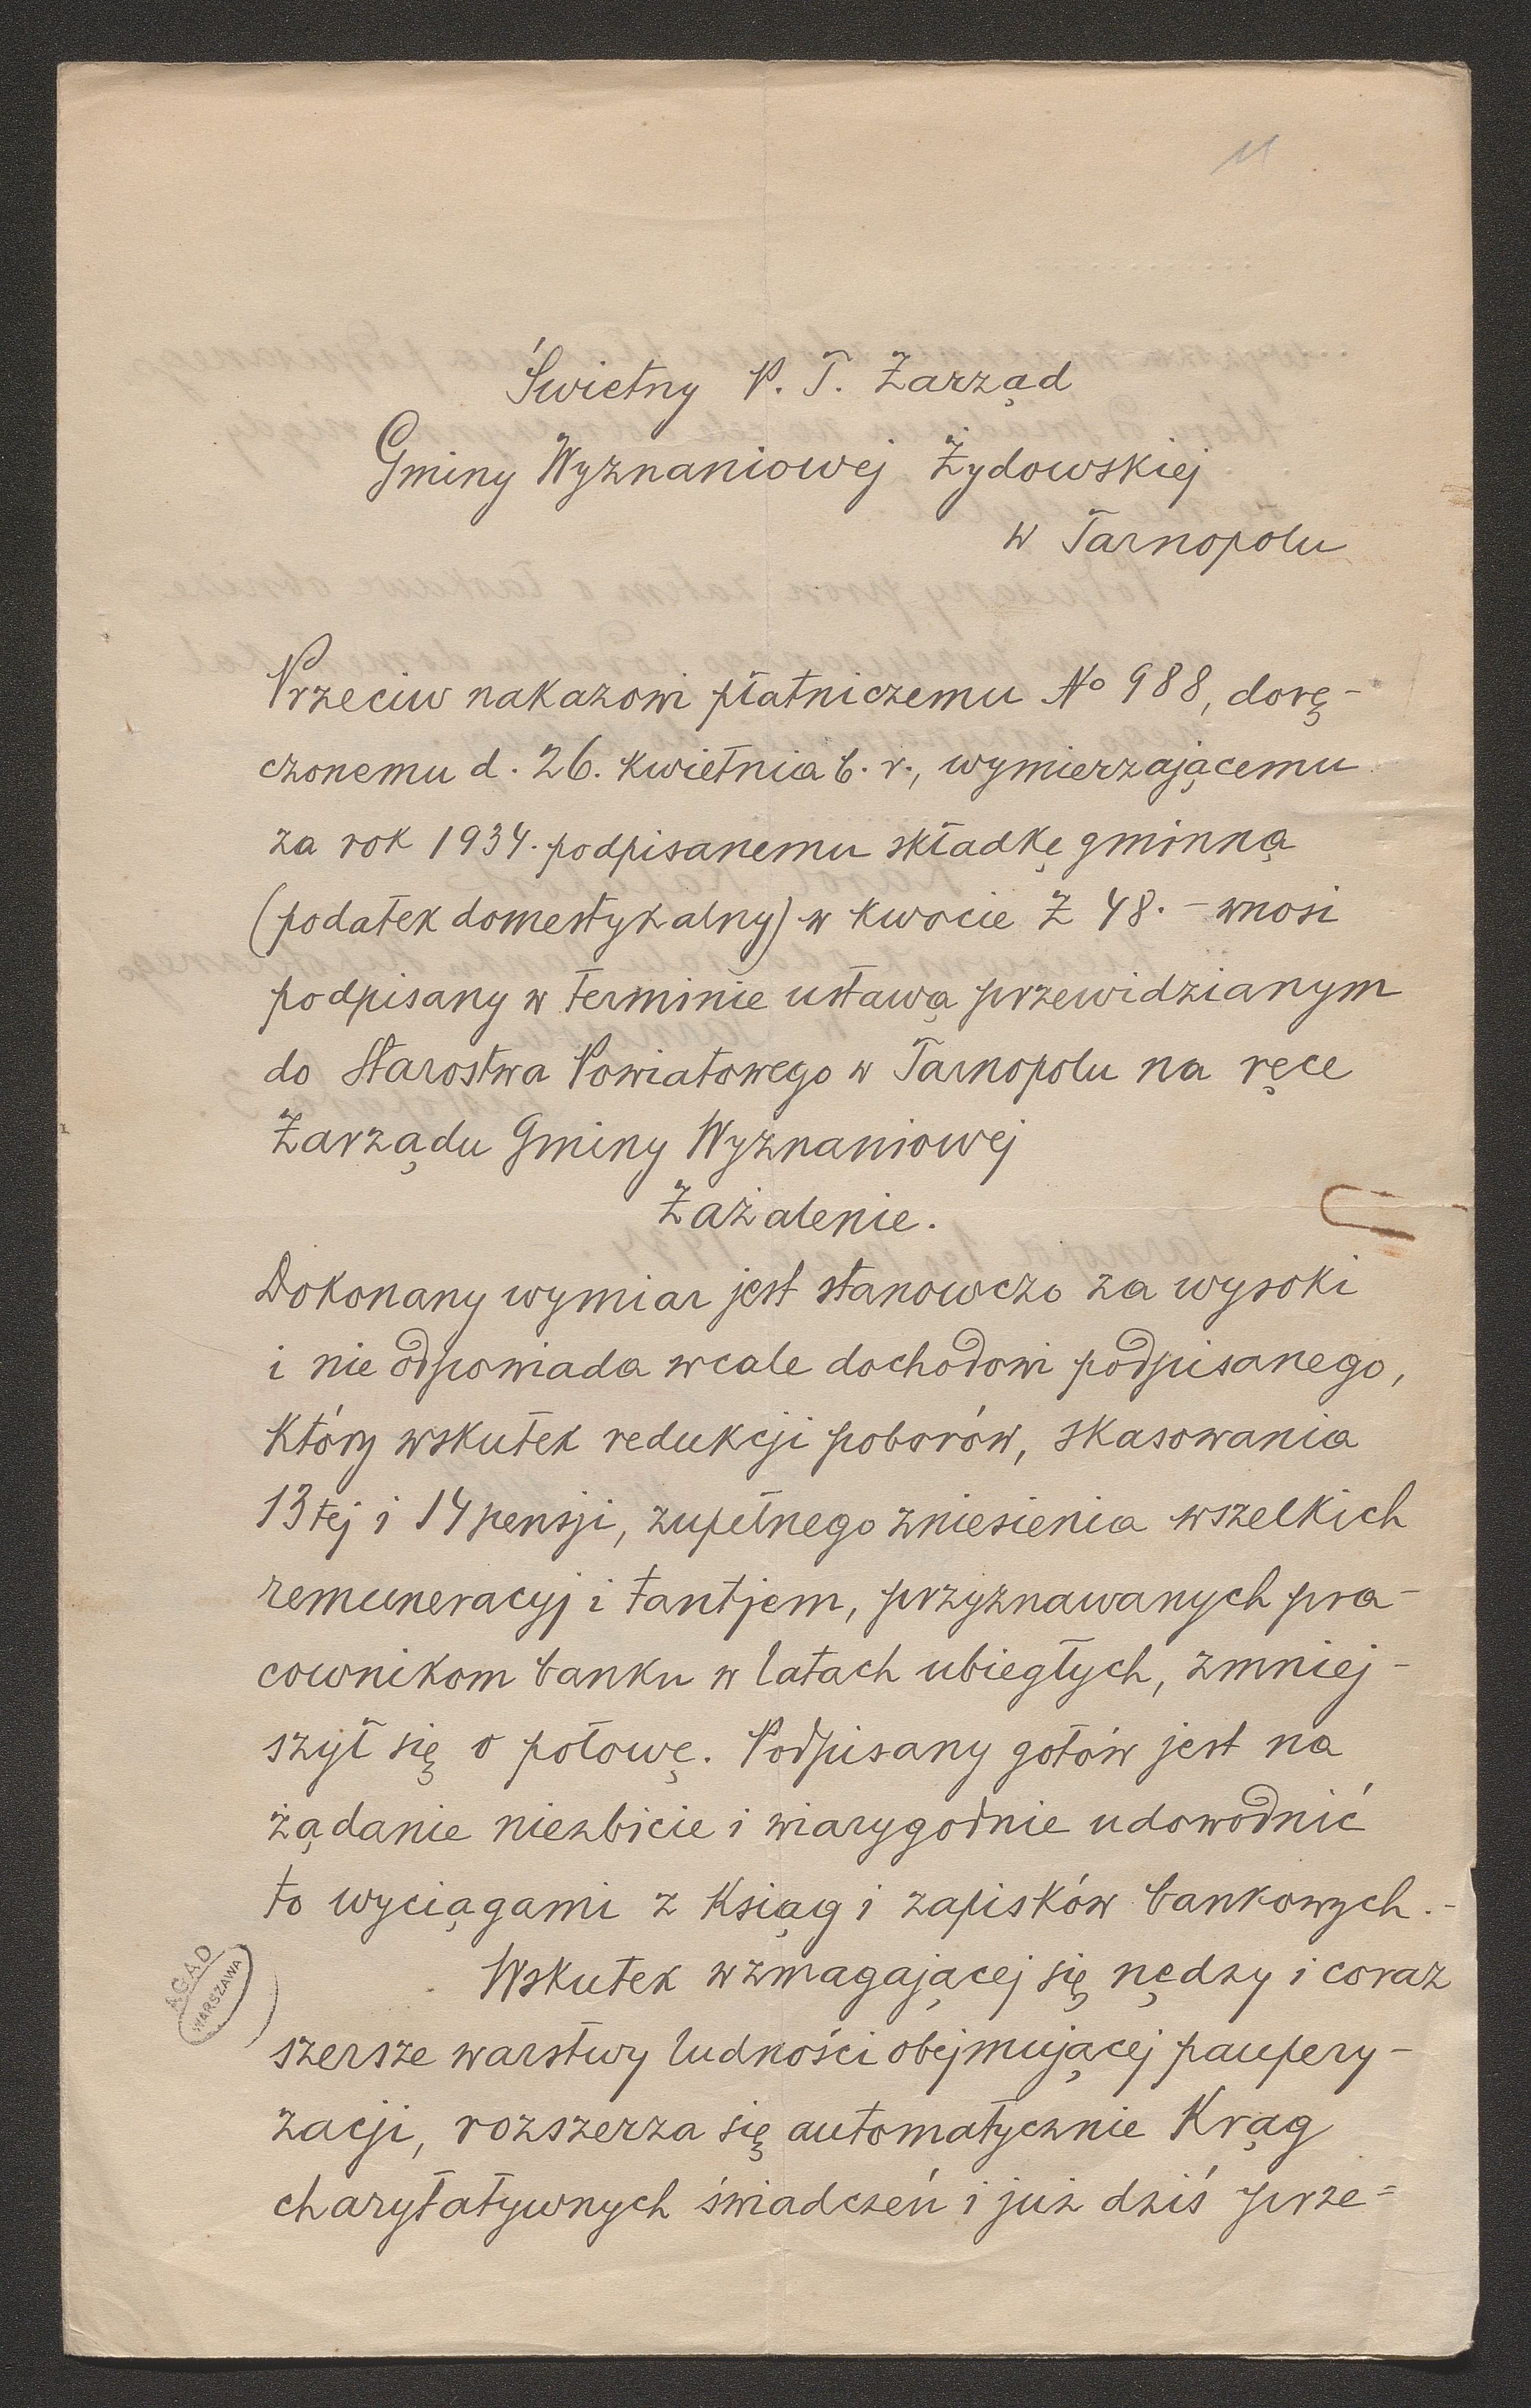 11
Świetny P. T. Zarząd
Gminy Wyznaniowej Żydowskiej
w Tarnopolu
Przeciw nakazowi płatniczemu No 988, dorę-
czonemu d. 26. kwietnia b. r., wymierzającemu
za rok 1934. podpisanemu składkę gminną
(podatek domestykalny) w kwocie Z 48.- wnosi
podpisany w terminie ustawą przewidzianym
do Starostwa Powiatowego w Tarnopolu na ręce
Zarządu Gminy Wyznaniowej
Zażalenie.
Dokonany wymiar jest stanowczo za wysoki
i nie odpowiada wcale dochodowi podpisanego,
który wskutek redukcji poborów, skasowania
13tej i 14 pensji, zupełnego zniesienia wszelkich
remuneracyj i tantjem, przyznawanych pra-
cownikom banku w latach ubiegłych, zmniej-
szył się o połowę. Podpisany gotów jest na
żądanie niezbicie i wiarygodnie udowodnić
to wyciągami z ksiąg i zapisków bankowych.-
Wskutek wzmagającej się nędzy i coraz
szersze warstwy ludności obejmującej paupery-
zacji, rozszerza się automatycznie krąg
charytatywnych świadczeń i już dziś prze=
AGAD
WARSZAWA